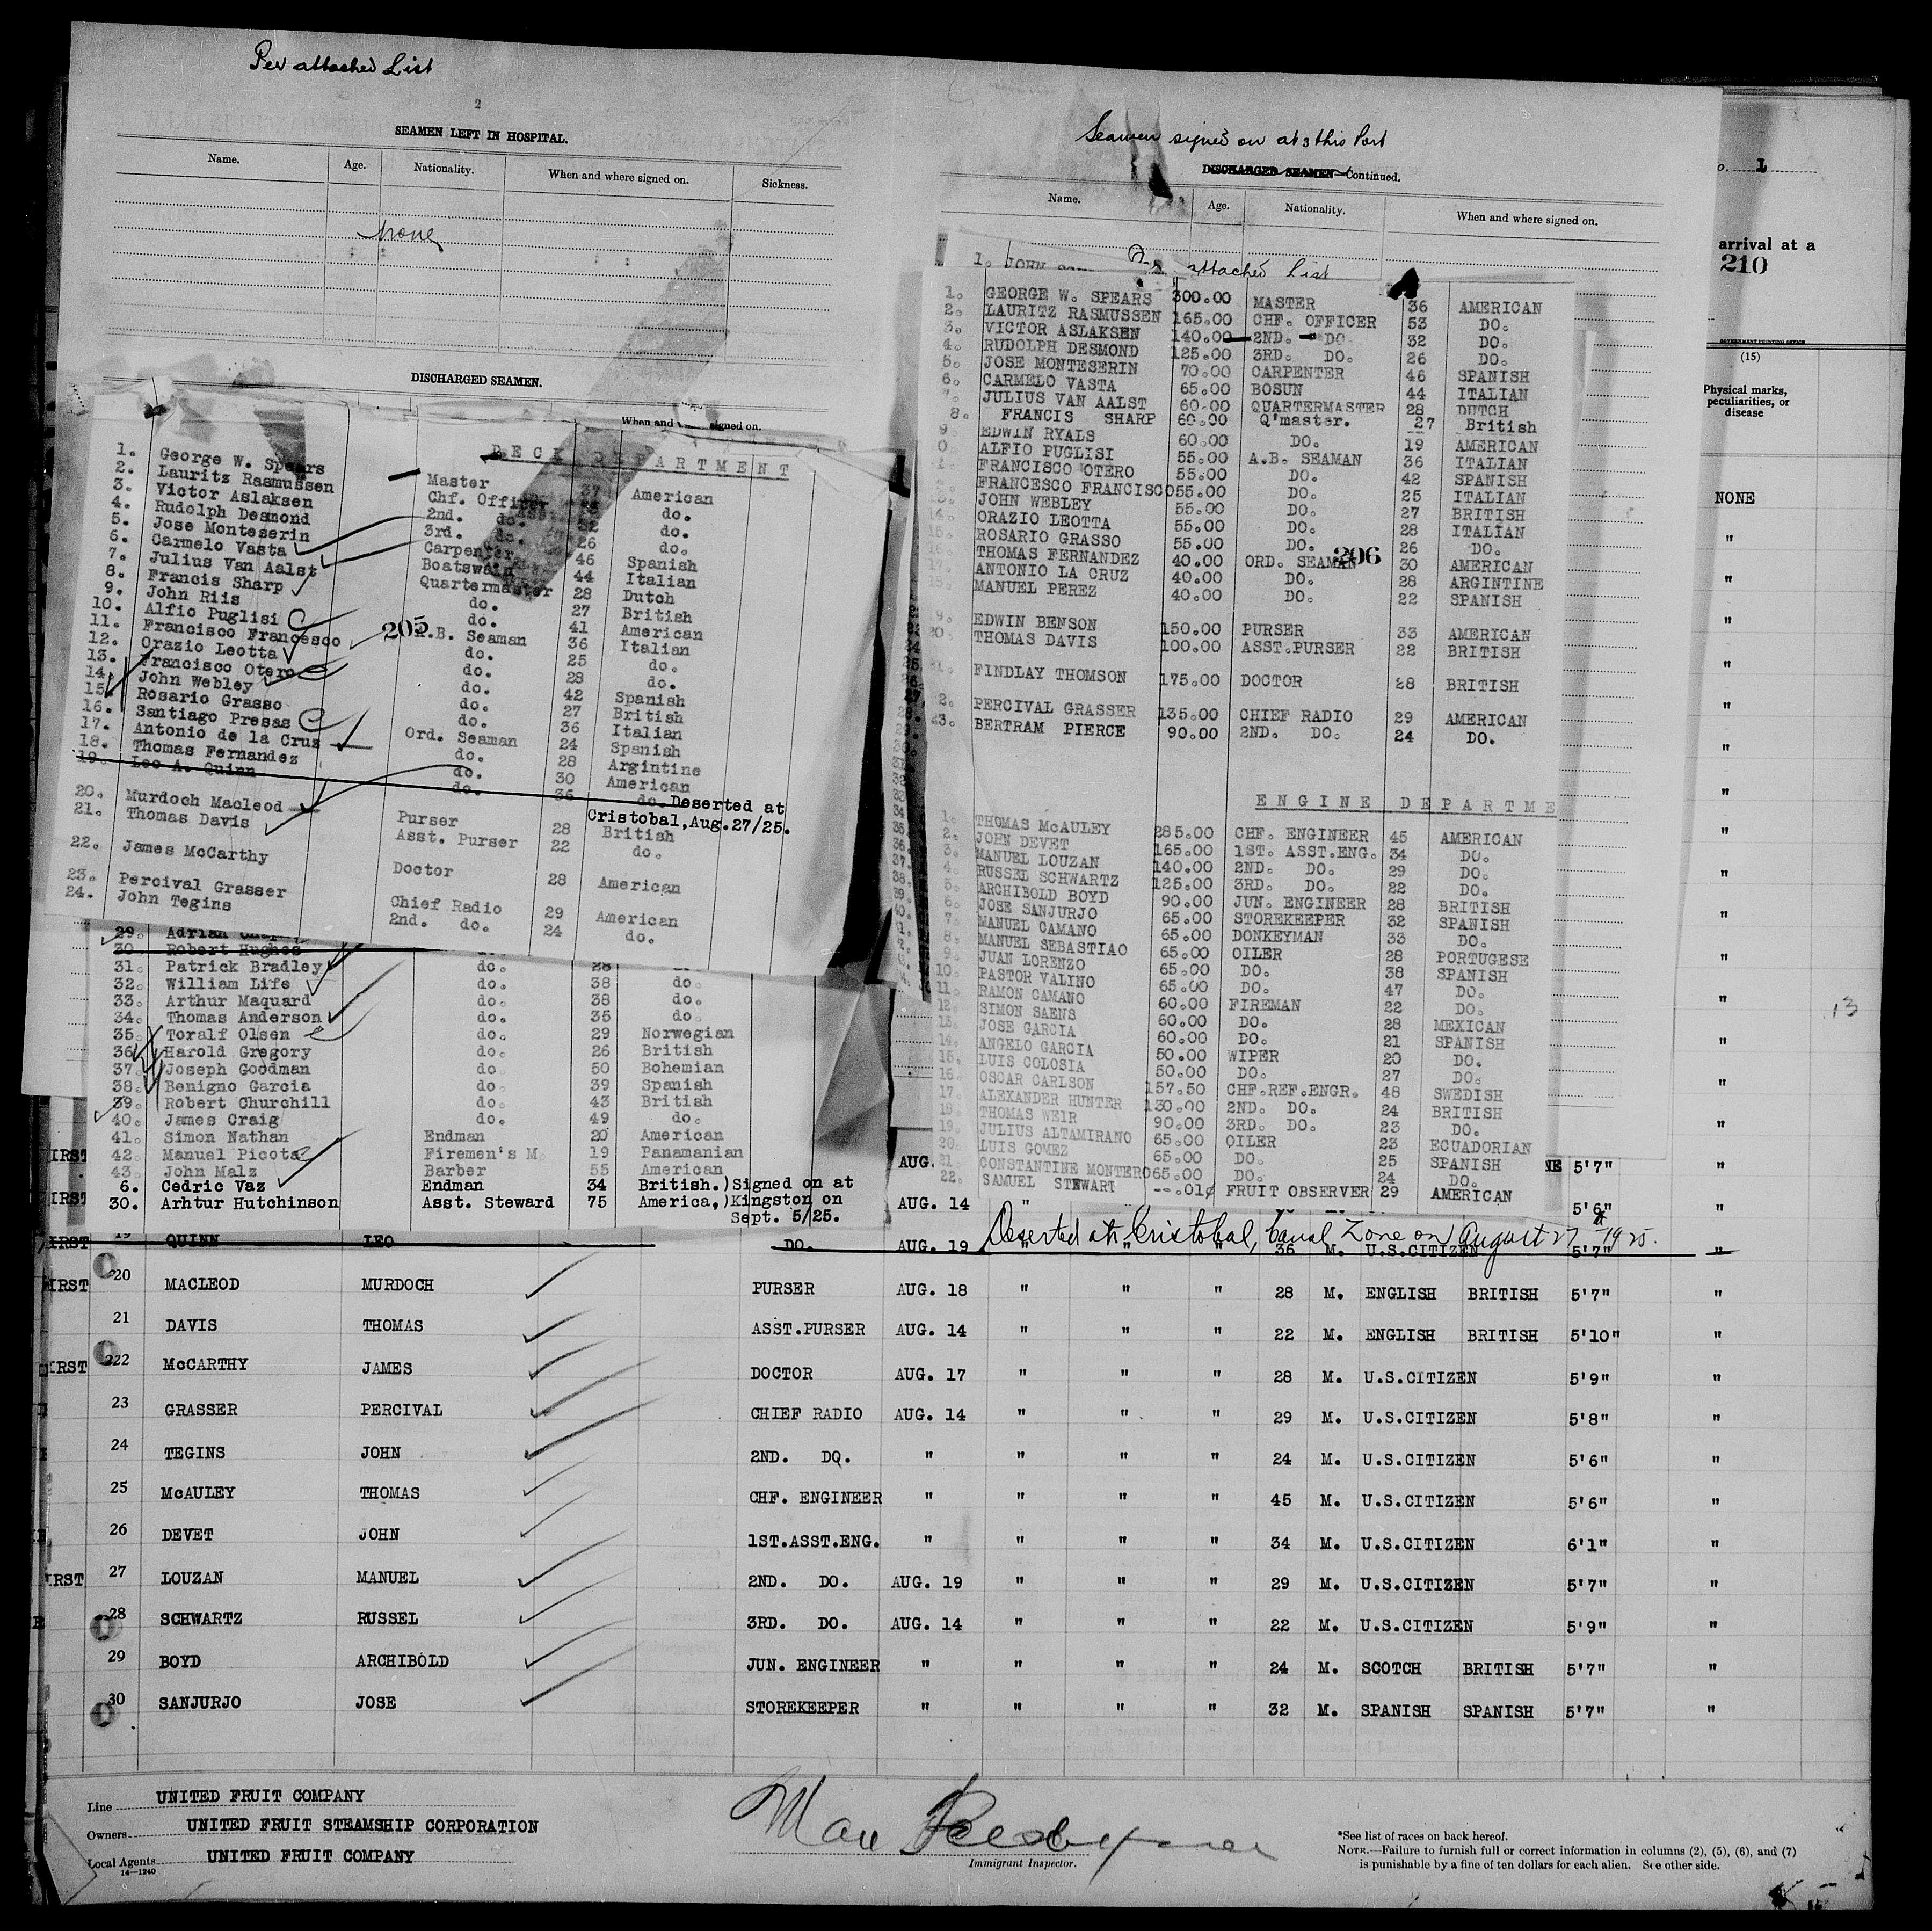 Per attached List
2
SEAMEN LEFT IN HOSPITAL.
Name. Age. Nationality. When and where signed on. Sickness.
None
DISCHARGED SEAMEN.
When and signed on.
DECK DEPARTMENT
1. George W. Spears Master 37 American
2. Lauritz Rasmussen Chf. Officer do.
3. Victor Aslaksen 2nd. do. 32 do.
4. Rudolph Desmond 3rd. do. 26 do.
5. Jose Monteserin Carpenter 46 Spanish
6. Carmelo Vasta Boatswain 44 Italian
7. Julius Van Aalst Quartermaster 28 Dutch
8. Francis Sharp do. 27 British
9. John Riis do. 41 American
10. Alfio Puglisi A.B. Seaman 36 Italian
11. Francisco Francesco do. 25 do.
12. Orazio Leotta do. 28 do.
13. Francisco Otero do. 42 Spanish
14. John Webley do. 27 British
15. Rosario Grasso do. 36 Italian
16. Santiago Presas Ord. Seaman 24 Spanish
17. Antonio de la Cruz do. 28 Argintine
18. Thomas Fernandez do. 30 American
19. Leo A. Quinn do. 36 do. Deserted at
Cristobal, Aug.27/25.
20. Murdoch Macleod Purser 28 British
21. Thomas Davis Asst. Purser 22 do.
22. James McCarthy Doctor 28 American
23. Percival Grasser Chief Radio 29 American
24. John Tegins 2nd. do. 24 do.
205
29. Adrian
30 Robert Hughes
31. Patrick Bradley do. 28
32. William Life do. 38 do.
33. Arthur Maquard do. 38 do.
34. Thomas Anderson do. 35 do.
35. Toralf Olsen do. 29 Norwegian
36. Harold Gregory do. 26 British
37. Joseph Goodman do. 50 Bohemian
38. Benigno Garcia do. 39 Spanish
39. Robert Churchill do. 43 British
40. James Craig do. 49 do.
41. Simon Nathan Endman 20 American
42. Manuel Picota Firemen's M. 19 Panamanian
43. John Malz Barber 55 American
6. Cedric Vaz Endman 34 British.)Signed on at
30. Arhtur Hutchinson Asst. Steward 75 America,)Kingston on
Sept. 5/25.
Seamen signed on at this Port
3
DISCHARGED SEAMEN—Continued.
Name. Age. Nationality. When and where signed on.
1. JOHN
attached List
1. GEORGE W. SPEARS 300.00 MASTER 36 AMERICAN
2. LAURITZ RASMUSSEN 165.00 CHF. OFFICER 53 DO.
3. VICTOR ASLAKSEN 140.00 2ND. DO 32 DO.
4. RUDOLPH DESMOND 125.00 3RD. DO. 26 DO.
5. JOSE MONTESERIN 70.00 CARPENTER 46 SPANISH
6. CARMELO VASTA 65.00 BOSUN 44 ITALIAN
7. JULIUS VAN AALST 60.00 QUARTERMASTER 28 DUTCH
8. FRANCIS SHARP 60.00 Q'master. 27 British
9. EDWIN RYALS 60.00 DO. 19 AMERICAN
0. ALFIO PUGLISI 55.00 A.B. SEAMAN 36 ITALIAN
1. FRANCISCO OTERO 55.00 DO. 42 SPANISH
FRANCESCO FRANCISCO 55.00 DO. 25 ITALIAN
JOHN WEBLEY 55.00 DO. 27 BRITISH
14. ORAZIO LEOTTA 55.00 DO. 28 ITALIAN
15. ROSARIO GRASSO 55.00 DO. 26 DO.
16. THOMAS FERNANDEZ 40.00 ORD. SEAMAN 30 AMERICAN
ANTONIO LA CRUZ 40.00 DO. 28 ARGINTINE
MANUEL PEREZ 40.00 DO. 22 SPANISH
206
9. EDWIN BENSON 150.00 PURSER 33 AMERICAN
20. THOMAS DAVIS 100.00 ASST.PURSER 22 BRITISH
FINDLAY THOMSON 175.00 DOCTOR 28 BRITISH
2. PERCIVAL GRASSER 135.00 CHIEF RADIO 29 AMERICAN
23. BERTRAM PIERCE 90.00 2ND. DO. 24 DO.
ENGINE DEPARTME
1. THOMAS McAULEY 285.00 CHF. ENGINEER 45 AMERICAN
2. JOHN DEVET 165.00 1ST. ASST.ENG. 34 DO.
3. MANUEL LOUZAN 140.00 2ND. DO. 29 DO.
4. RUSSEL SCHWARTZ 125.00 3RD. DO. 22 DO.
5. ARCHIBOLD BOYD 90.00 JUN. ENGINEER 28 BRITISH
6. JOSE SANJURJO 65.00 STOREKEEPER 32 SPANISH
7. MANUEL CAMANO 65.00 DONKEYMAN 33 DO.
8. MANUEL SEBASTIAO 65.00 OILER 28 PORTUGESE
9. JUAN LORENZO 65.00 DO. 38 SPANISH
10. PASTOR VALINO 65.00 DO. 47 DO.
11. RAMON CAMANO 60.00 FIREMAN 22 DO.
12. SIMON SAENS 60.00 DO. 28 MEXICAN
13. JOSE GARCIA 60.00 DO. 21 SPANISH
14. ANGELO GARCIA 50.00 WIPER 20 DO.
15. LUIS COLOSIA 50.00 DO. 27 DO.
16. OSCAR CARLSON 157.50 CHF.REF.ENGR. 48 SWEDISH
17. ALEXANDER HUNTER 130.00 2ND. DO. 24 BRITISH
18. THOMAS WEIR 90.00 3RD. DO. 23 DO.
19. JULIUS ALTAMIRANO 65.00 OILER 23 ECUADORIAN
20. LUIS GOMEZ 65.00 DO. 25 SPANISH
21. CONSTANTINE MONTERO 65.00 DO. 24 DO.
22. SAMUEL STEWART --.01¢ FRUIT OBSERVER 29 AMERICAN
o. 1
arrival at a
210
GOVERNMENT PRINTING OFFICE
(15)
Physical marks, peculiarities, or disease
NONE
13
IRST AUG. NE 5'7" "
IRST AUG. 14 " 5'6" "
Deserted at Cristobal, Canal Zone on August 27th 1925.
IRST 19 QUINN LEO DO. AUG. 19 " " 36 M. U.S.CITIZEN 5'7" "
IRST 20 MACLEOD MURDOCH PURSER AUG. 18 " " " 28 M. ENGLISH BRITISH 5'7" "
21 DAVIS THOMAS ASST.PURSER AUG. 14 " " " 22 M. ENGLISH BRITISH 5'10" "
IRST 222 McCARTHY JAMES DOCTOR AUG. 17 " " " 28 M. U.S.CITIZEN 5'9" "
23 GRASSER PERCIVAL CHIEF RADIO AUG. 14 " " " 29 M. U.S.CITIZEN 5'8" "
24 TEGINS JOHN 2ND. DO. " " " " 24 M. U.S.CITIZEN 5'6" "
25 McAULEY THOMAS CHF. ENGINEER " " " " 45 M. U.S.CITIZEN 5'6" "
26 DEVET JOHN 1ST.ASST.ENG. " " " " 34 M. U.S.CITIZEN 6'1" "
IRST 27 LOUZAN MANUEL 2ND. DO. AUG. 19 " " " 29 M. U.S.CITIZEN 5'7" "
28 SCHWARTZ RUSSEL 3RD. DO. AUG. 14 " " " 22 M. U.S.CITIZEN 5'9" "
29 BOYD ARCHIBOLD JUN. ENGINEER " " " " 24 M. SCOTCH BRITISH 5'7" "
30 SANJURJO JOSE STOREKEEPER " " " " 32 M. SPANISH SPANISH 5'7" "
Line UNITED FRUIT COMPANY
Owners UNITED FRUIT STEAMSHIP CORPORATION
Local Agents UNITED FRUIT COMPANY
14—1240
Immigrant Inspector.
*See list of races on back hereof.
NOTE.—Failure to furnish full or correct information in columns (2), (5), (6), and (7)
is punishable by a fine of ten dollars for each alien. See other side.